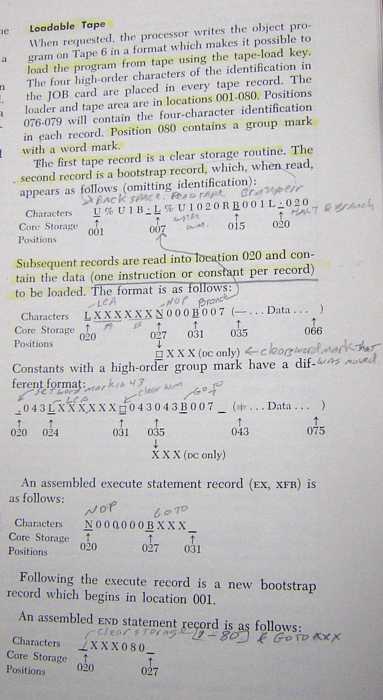 Loadable Tape
When requested, the processor writes the object pro-
gram on Tape 6 in a format which makes it possible to
load the program from tape using the tape-load key.
The four high-order characters of the identification in
the JOB card are placed in every tape record. The
loader and tape area are in locations 001-080. Positions
076-079 will contain the four-character identification
in each record. Position 080 contains a group mark
with a word mark.
The first tape record is a clear storage routine. The
second record is a bootstrap record, which, when read,
appears as follows (omitting identification):
Backspace. Read tape
Characters U % U 1 B - L % U 1 0 2 0 R B 0 0 1 L - 0 2 0
with wm.
HALT & Branch
Core Storage ↑ ↑ ↑ ↑
Positions 001 007 015 020
Subsequent records are read into location 020 and con-
tain the data (one instruction or constant per record)
to be loaded. The format is as follows:
LCA NOP Branch
Characters L X X X X X X N 0 0 0 B 0 0 7 (— . . . Data . . . )
A B
Core Storage ↑ ↑ ↑ ↑ ↑
Positions 020 027 031 035 066
↓
□ X X X (DC only) ← clears word mark that
was moved
Constants with a high-order group mark have a dif-
ferent format:
set word mark in 43
LCA clear wm GOTO
, 0 4 3 L X X X X X X □ 0 4 3 0 4 3 B 0 0 7 _ (⧧ . . . Data . . . )
↑ ↑ ↑ ↑ ↑ ↑
020 024 031 035 043 075
↓
X X X (DC only)
An assembled execute statement record (EX, XFR) is
as follows:
NOP GOTO
Characters N 0 0 0 0 0 0 B X X X _
Core Storage ↑ ↑ ↑
Positions 020 027 031
Following the execute record is a new bootstrap
record which begins in location 001.
An assembled END statement record is as follows:
clear storage 1-80 & GOTO XXX
Characters / X X X 0 8 0 _
Core Storage ↑ ↑
Positions 020 027